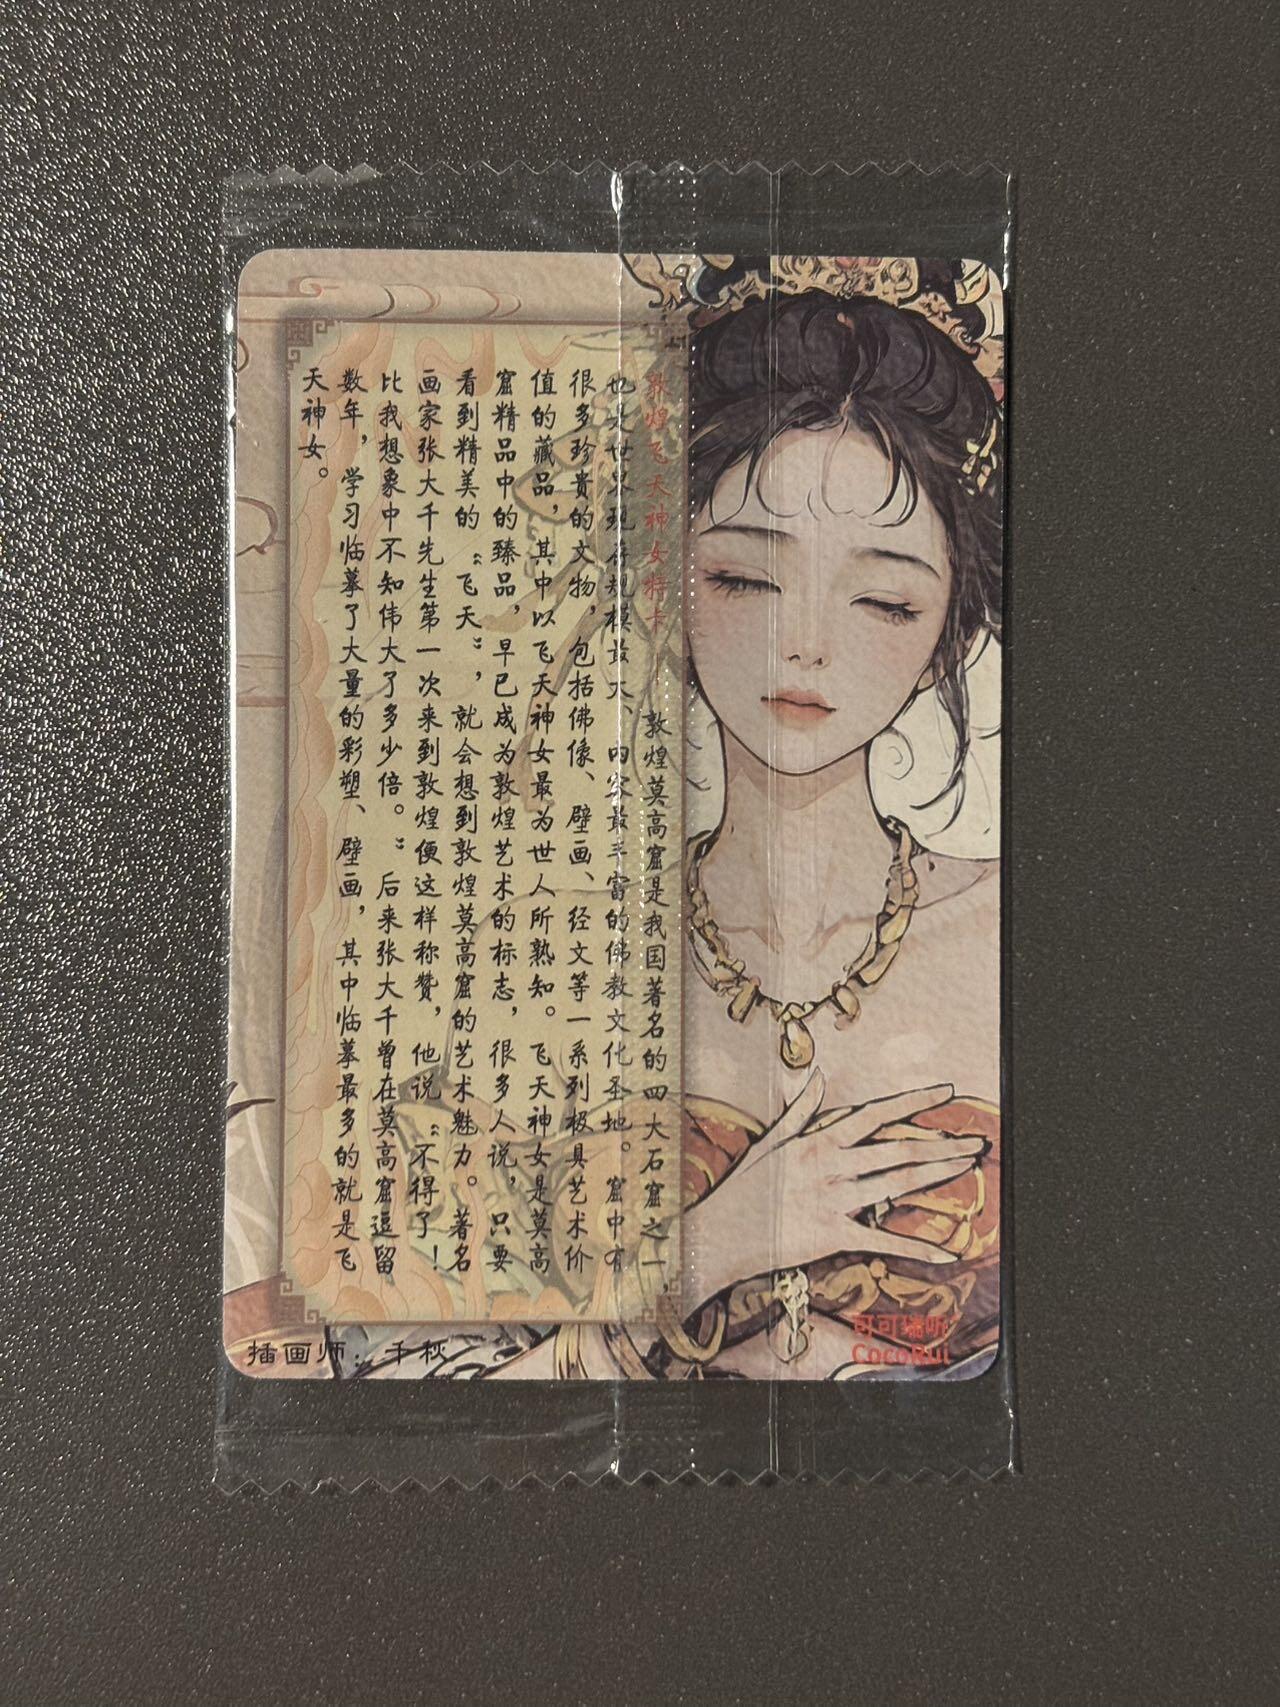 敦煌飞天神女特卡——敦煌莫高窟是我国著名的四大石窟之一，
也是世界现存规模最大、内容最丰富的佛教文化圣地。窟中有
很多珍贵的文物，包括佛像、壁画、经文等一系列极具艺术价
值的藏品，其中以飞天神女最为世人所熟知。飞天神女是莫高
窟精品中的臻品，早已成为敦煌艺术的标志，很多人说，只要
看到精美的“飞天”，就会想到敦煌莫高窟的艺术魅力。著名
画家张大千先生第一次来到敦煌便这样称赞，他说“不得了！
比我想象中不知伟大了多少倍。”后来张大千曾在莫高窟逗留
数年，学习临摹了大量的彩塑、壁画，其中临摹最多的就是飞
天神女。
插画师：千秋
可可瑞听
CocoRui